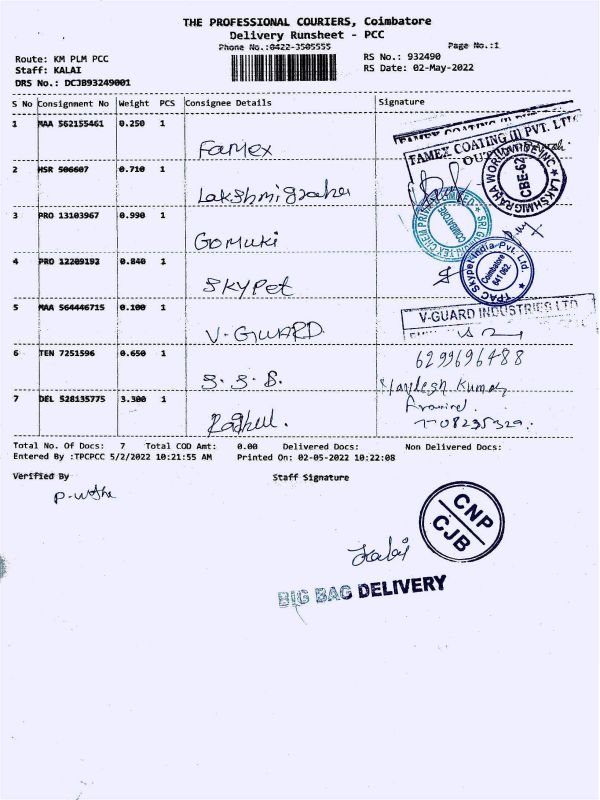 THE PROFESSIONAL COURIERS, Coimbatore
Delivery Runsheet - PCC
Phone No.:0422-3505555
Page No.:1
Route: KM PLM PCC
RS No.: 932490
Staff: KALAI
RS Date: 02-May-2022
DRS No.: DCJB93249001
S No Consignment No Weight PCS Consignee Details Signature
1 MAA 562155461 0.250 1 Famex
FAMEX COATING (I) PVT. LTD
OUT
2 HSR 506607 0.710 1 Lakshmigraha
LAKSHMIGRAHA WORLDWIDE INC
CBE-62
3 PRO 13103967 0.990 1 Gomuki
COIMBATORE
4 PRO 12209192 0.840 1 Skypet
TPAC Skypet India Pvt. Ltd.
Coimbatore
641 062.
5 MAA 564446715 0.100 1 V-GUARD
V-GUARD INDUSTRIES LTD
6 TEN 7251596 0.650 1 S.S.S.
6299696488
Kumar
7 DEL 528135775 3.300 1
Total No. Of Docs: 7 Total COD Amt: 0.00 Delivered Docs: Non Delivered Docs:
Entered By :TPCPCC 5/2/2022 10:21:55 AM Printed On: 02-05-2022 10:22:08
Verified By Staff Signature
CNP
CJB
Kalai
BIG BAG DELIVERY